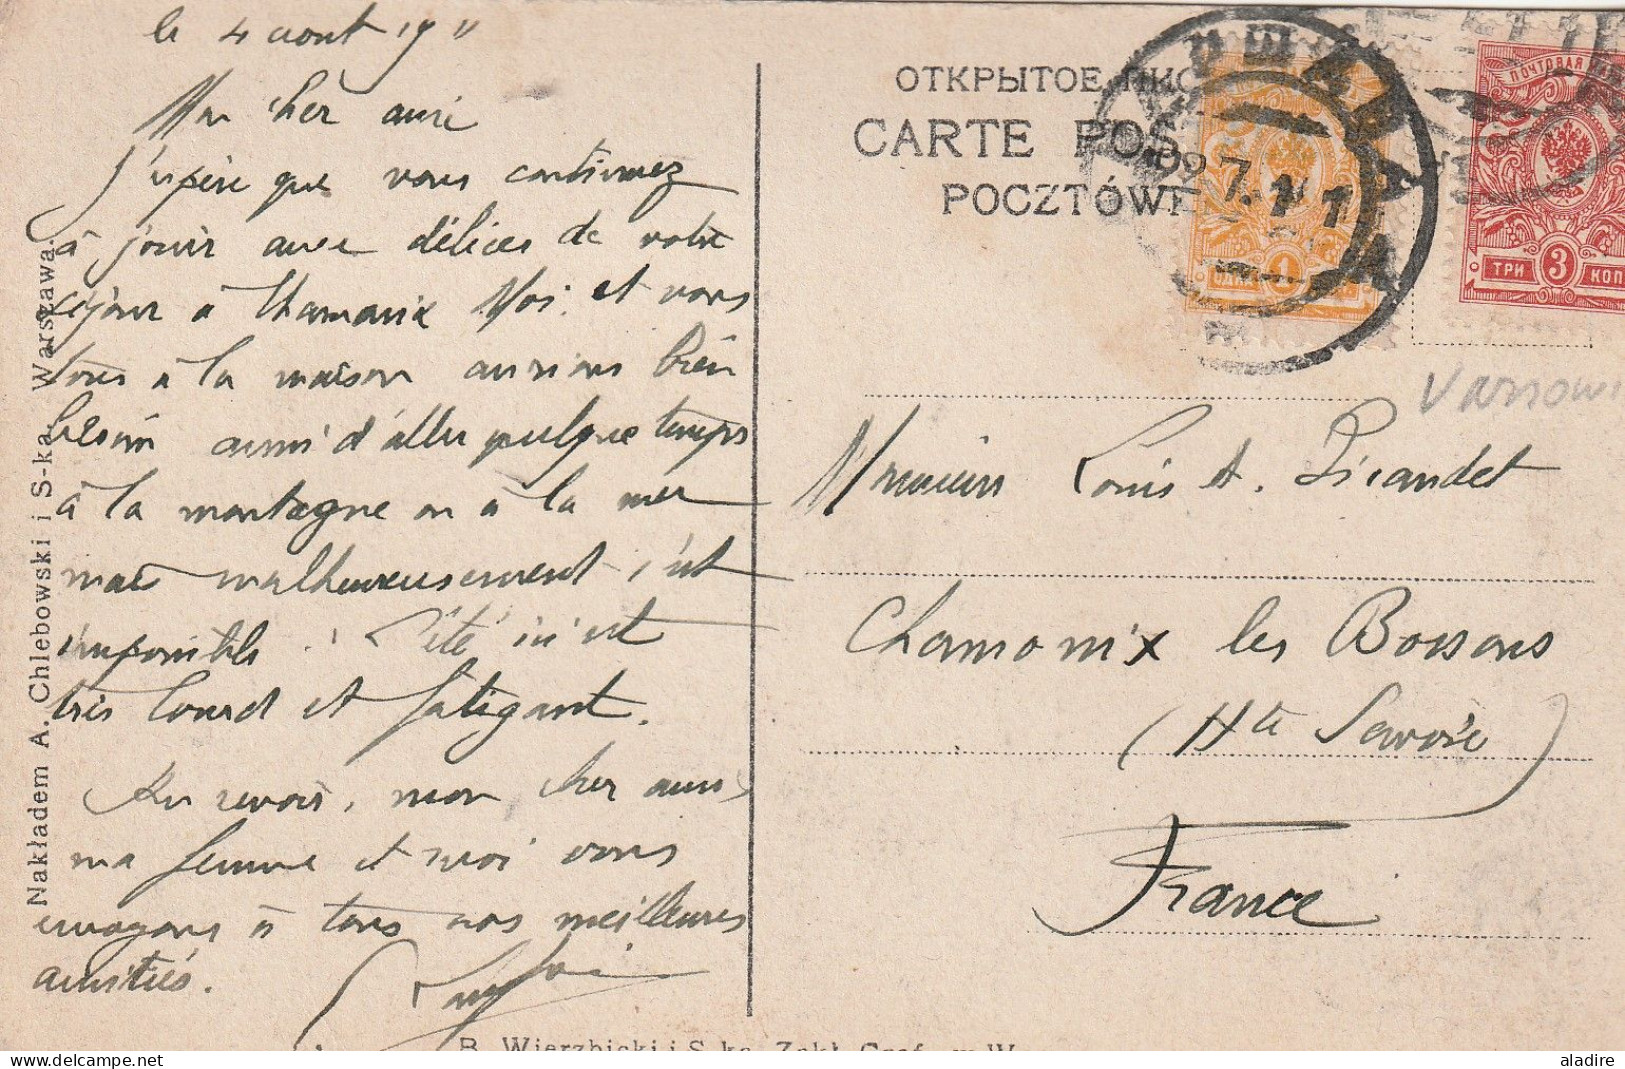 le 4 aout 1911
Mon cher ami
J'espère que vous continuez
à jouir avec délices de votre
séjour à Chamonix Moi et nous
tous à la maison aurions bien
besoin aussi d'aller quelque temps
à la montagne ou à la mer
mais malheureusement c'est
impossible. L'été ici est
très lourd et fatigant.
Au revoir, mon cher ami,
ma femme et moi vous
envoyons à tous nos meilleures
amitiés.
Nakładem A. Chlebowski i S-ka Warszawa.
B. Wierzbicki i S-ka
ОТКРЫТОЕ
CARTE POS
POCZTÓWE
22 7. 11
ПОЧТОВАЯ
ТРИ 3 КОП
1
Varsowi
Monsieur Louis A. Picandet
Chamonix les Bossons
(Hte Savoie)
France
aladire